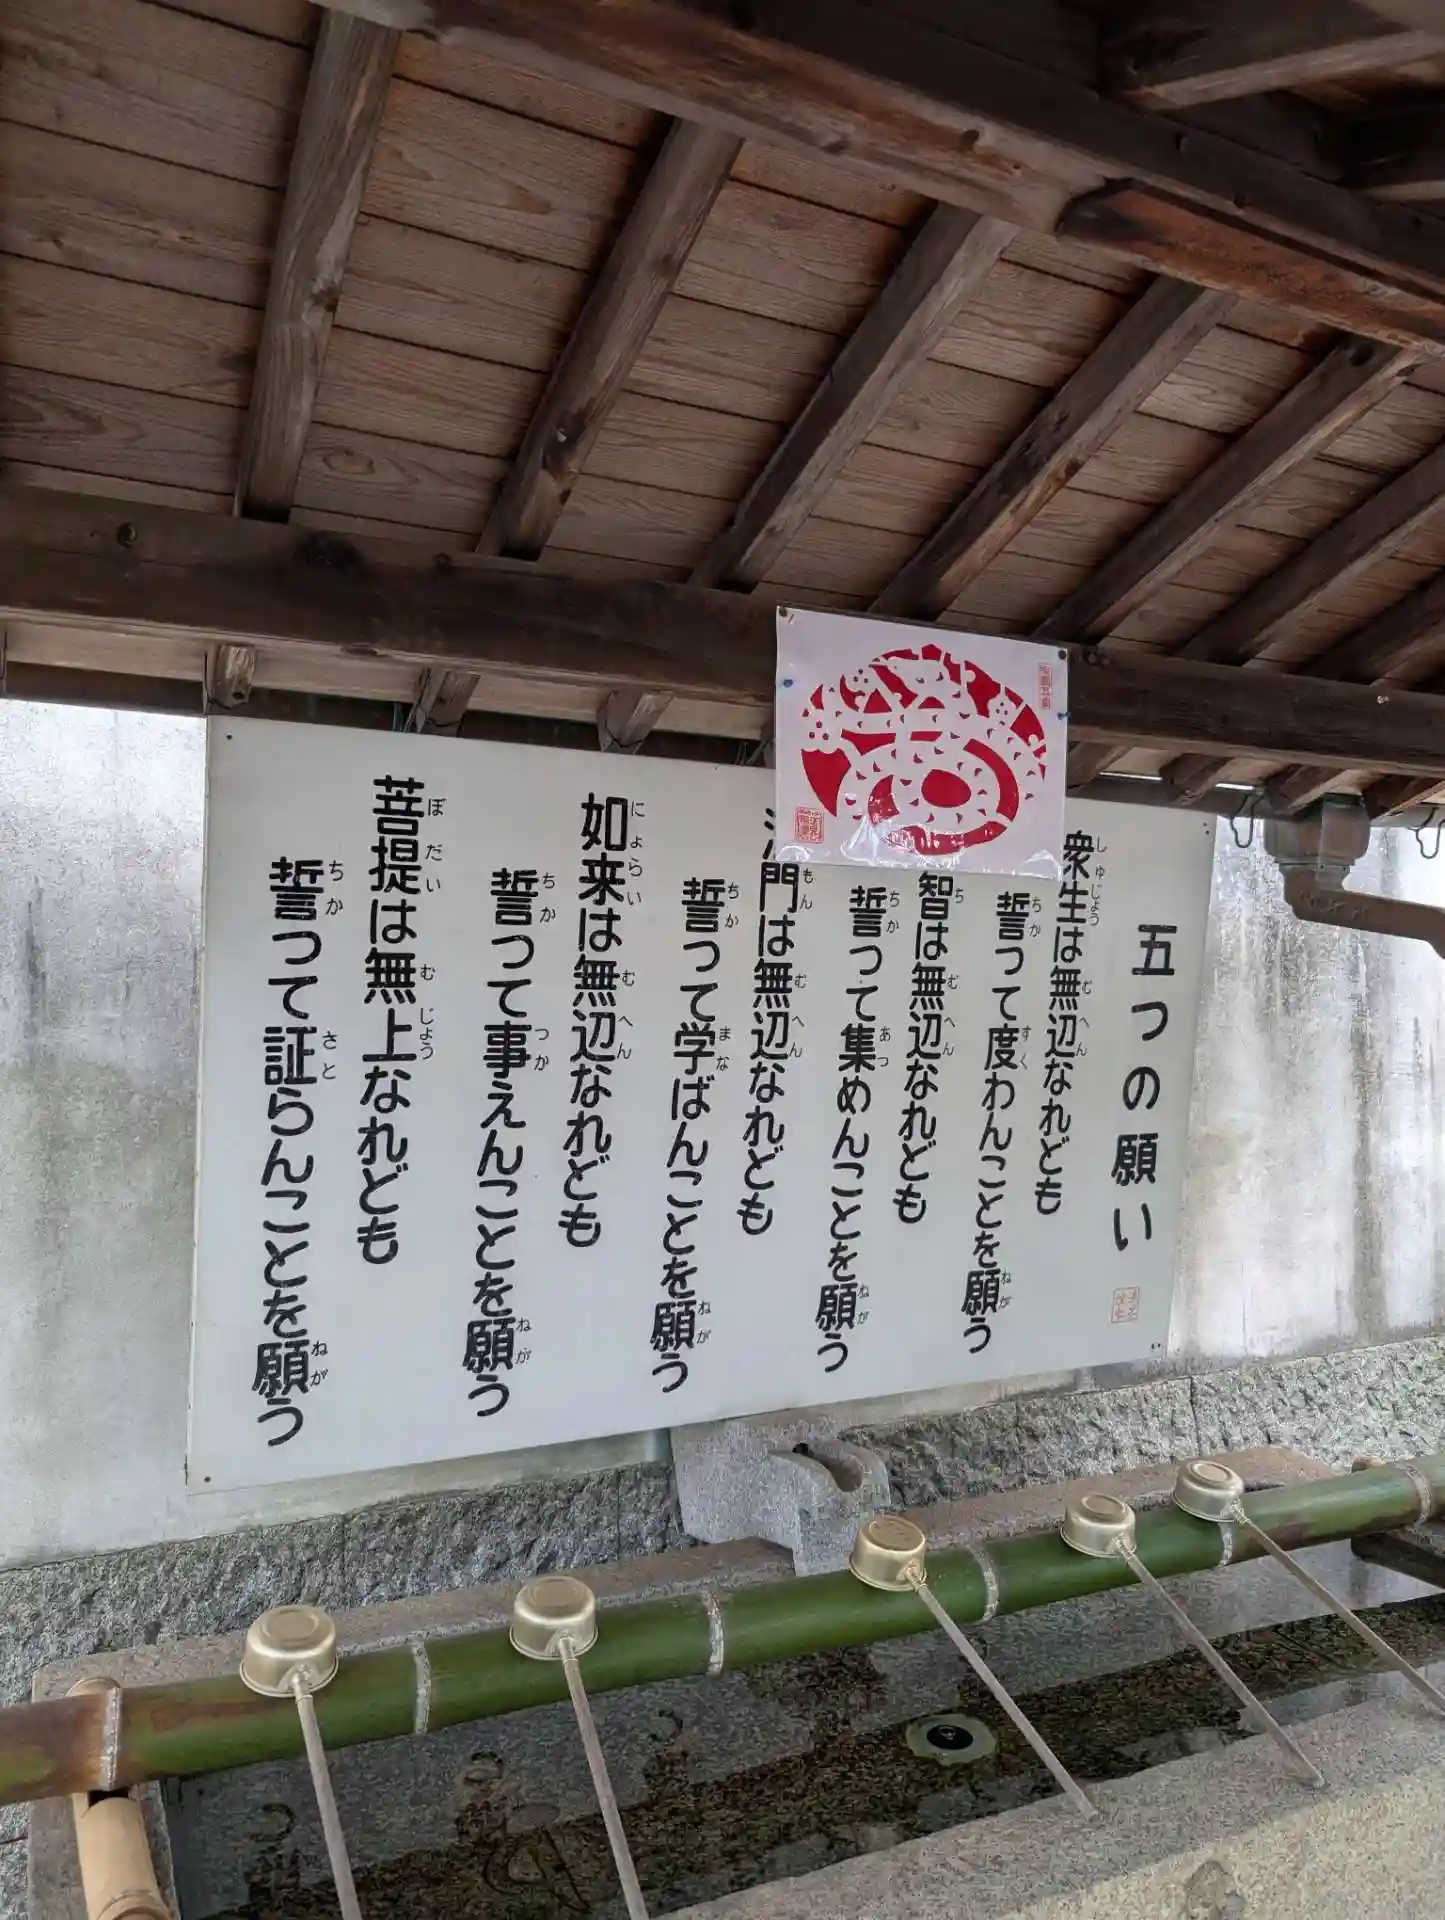 五つの願い
衆生は無辺なれども
誓つて度わんことを願う
智は無辺なれども
誓つて集めんことを願う
門は無辺なれども
誓つて学ばんことを願う
如来は無辺なれども
誓つて事えんことを願う
菩提は無上なれども
誓つて証らんことを願う